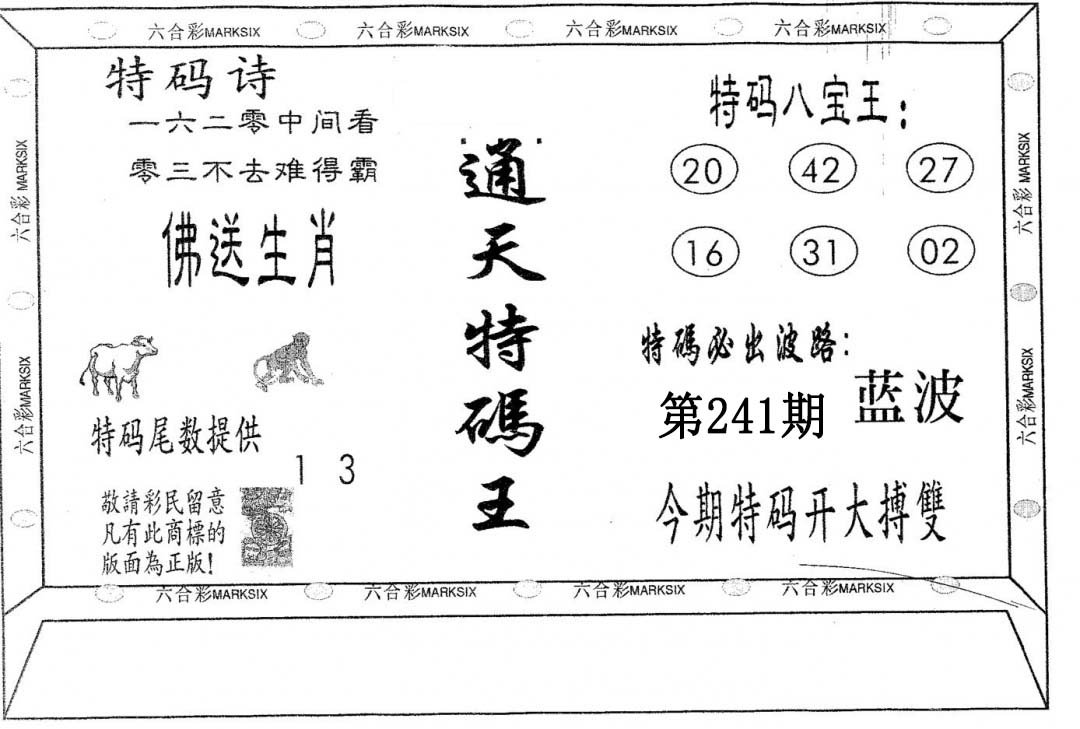 六合彩MARKSIX 六合彩MARKSIX 六合彩MARKSIX 六合彩MARKSIX
六合彩 MARKSIX
六合彩MARKSIX
特码诗
一六二零中间看
零三不去难得霸
佛送生肖
特码尾数提供
1 3
敬請彩民留意
凡有此商標的
版面為正版!
通天特碼王
特码八宝王:
20 42 27
16 31 02
特碼必出波路:
第241期 蓝波
今期特码开大搏雙
六合彩 MARKSIX
六合彩MARKSIX
六合彩MARKSIX 六合彩MARKSIX 六合彩MARKSIX 六合彩MARKSIX